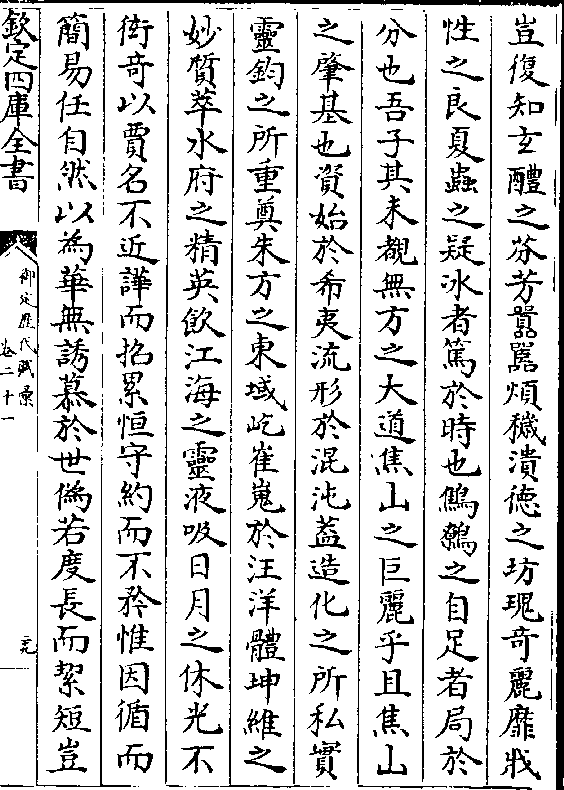 豈復知玄醴之芬芳囂囂煩穢潰德之坊瑰奇麗靡戕
性之良夏蟲之疑冰者篤於時也鷦鷯之自足者局於
分也吾子其未覩無方之大道焦山之巨麗乎且焦山
之肇基也資始於希夷流形於混沌蓋造化之所私實
靈鈞之所重奠朱方之東域屹崔嵬於汪洋體坤維之
妙質萃水府之精英飲江海之靈液吸日月之休光不
衒奇以賈名不近譁而招累恒守約而不矜惟因循而
簡易任自然以為華無誘慕於世偽若度長而絜短豈
欽定四庫全書
御定歷代賦彙
卷二十一
元